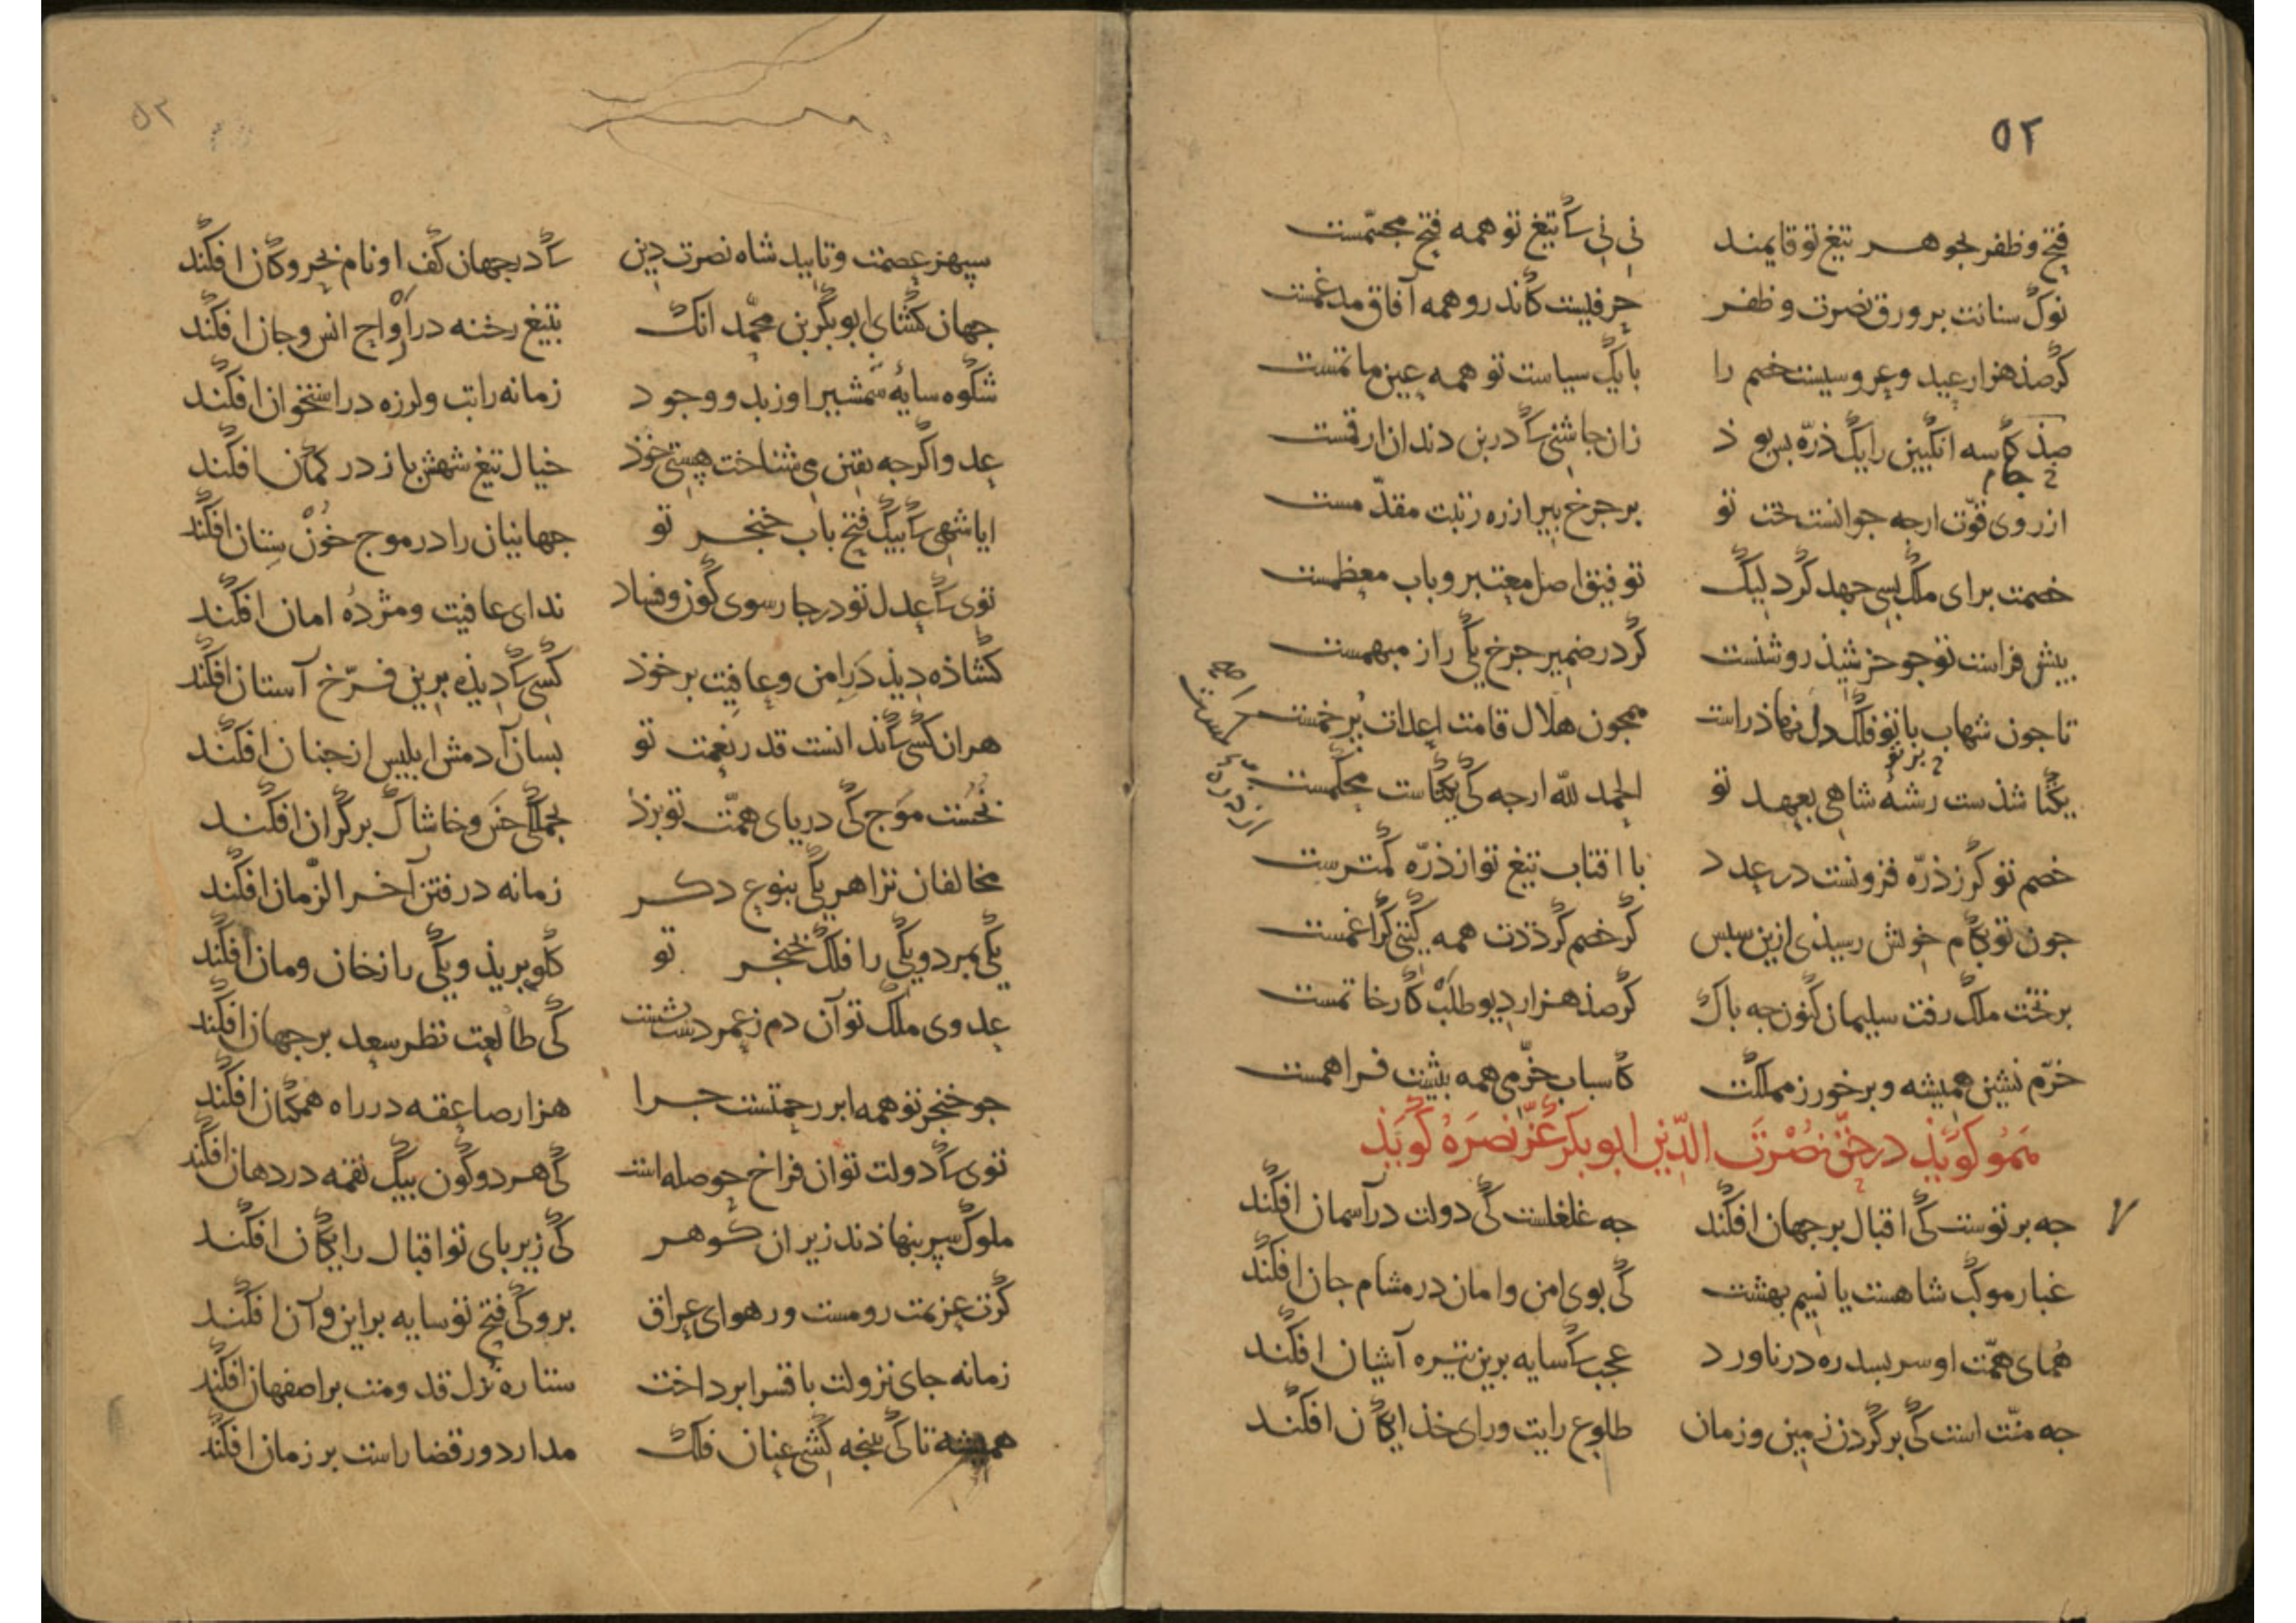 ۵۲
فتح و ظفر بجوهر تیغ تو قایمند نی نی ک تیغ تو همه فتح مجسّمست
نوک سنانت بر ورق نصرت و ظفر حرفیست کاندرو همه آفاق مدغمست
گر صذ هزار عید و عروسیست خصم را با یک سیاست تو همه عین ماتمست
صذ کاسه انگبین را یک ذرّه بس بوذ زان جاشنی ک در بن دندان ارقمست
جام
از روی قوّت ارجه جوانست تخت تو بر جرخ بیر از ره رتبت مقدّمست
خصمت برای ملک بسی جهد کرد لیک توفیق اصل معتبر و باب معظمست
بیش فراست تو جو خرشیذ روشنست گر در ضمیر جرخ یکی راز مبهمست
تا جون شهاب با تو فلک دل نهاذ راست همجون هلال قامت اعدات بُر خمست
بر تو
یکتا شذست رشتهٔ شاهی بعهد تو الحمد لله ارجه کی یکتاست محکمست
خصم تو گر ز ذرّه فزونست در عدد با افتاب تیغ تو از ذرّه کمترست
جون تو بکام خوش رسیذی ازین سبس گر خصم گرددت همه گیتی کرا غمست
بر تخت ملک رفت سلیمان کنون جه باک گر صذ هزار دیو طلب کار خاتمست
خرّم نشین همیشه و بر خور ز مملکت کاسباب خرّمی همه بیشت فراهمست
هَمو کوَیَذ در حقّ نُصْرَتَ الدّین ابوبکر عَزّ نصرَهُ کویَذ
جه برتوست کی اقبال بر جهان افکند جه غلغلست کی دولت در آسمان افکند
غبار موکب شاهست یا نسیم بهشت کی بوی امن و امان در مشام جان افکند
همای همّت او سر بسدره در ناورد عجب ک سایه برین تیره آشیان افکند
جه منّت است کی بر گردن زمین و زمان طلوع رایت و رای خذایگان افکند
۵۲
سپهر عصمت و تایید شاه نصرت دین ک در جهان کف او نام بحر و کان افکند
جهان کشای ابوبکر بن محمّد انک بتیغ رخنه در ارواح انس و جان افکند
شکوه سایهٔ شمشیر او زبد و وجود زمانه را تب و لرزه در استخوان افکند
عدو اگرجه یقین می شناخت پستی خوذ خیال تیغ شهش باز در کمان افکند
ایا شهی ک بیک فتح باب خنجر تو جهانیان را در موج خُوْن ستان افکند
توی ک عدل تو در جارسوی کون و فساد ندای عافیت و مژدهٔ امان افکند
کشاذه دیذ دَرِ امن و عافیت بر خوذ کسی ک دیذه برین فرّخ آستان افکند
هر ان کسی ک ندانست قدر نعمت تو بسان آدمش ابلیس از جنان افکند
نخُست مَوج کی دریای همّت تو بزذ بجملکی خس و خاشاک بر کران افکند
مخالفان ترا هر یکی بنوع دکر زمانه در فتن آخر الزّمان افکند
یکی بمرد و یکی را فلک بخنجر تو کلو بریذ و یکی را ز خان و مان افکند
عدوی ملک تو آن دم ز عمر دست بشست کی طالعت نظر سعد بر جهان افکند
جو خنجر تو همه ابر رحمتست جرا هزار صاعقه در راه همکنان افکند
توی ک دولت تو ان فراخ حوصله است کی هر دو کون بیک لقمه در دهان افکند
ملوک سپر بنهاذند زیر ان کوهر کی زیر بای تو اقبال رایکان افکند
کرت عزیمت رومست ور هوای عراق برو کی فتح تو سایه بر این و آن افکند
زمانه جای نزولت باقسرا برداخت ستاره نُزل قدومت بر اصفهان افکند
همیشه تا کی بنجه کشی عنان فلک مدار دور قضا راست بر زمان افکند